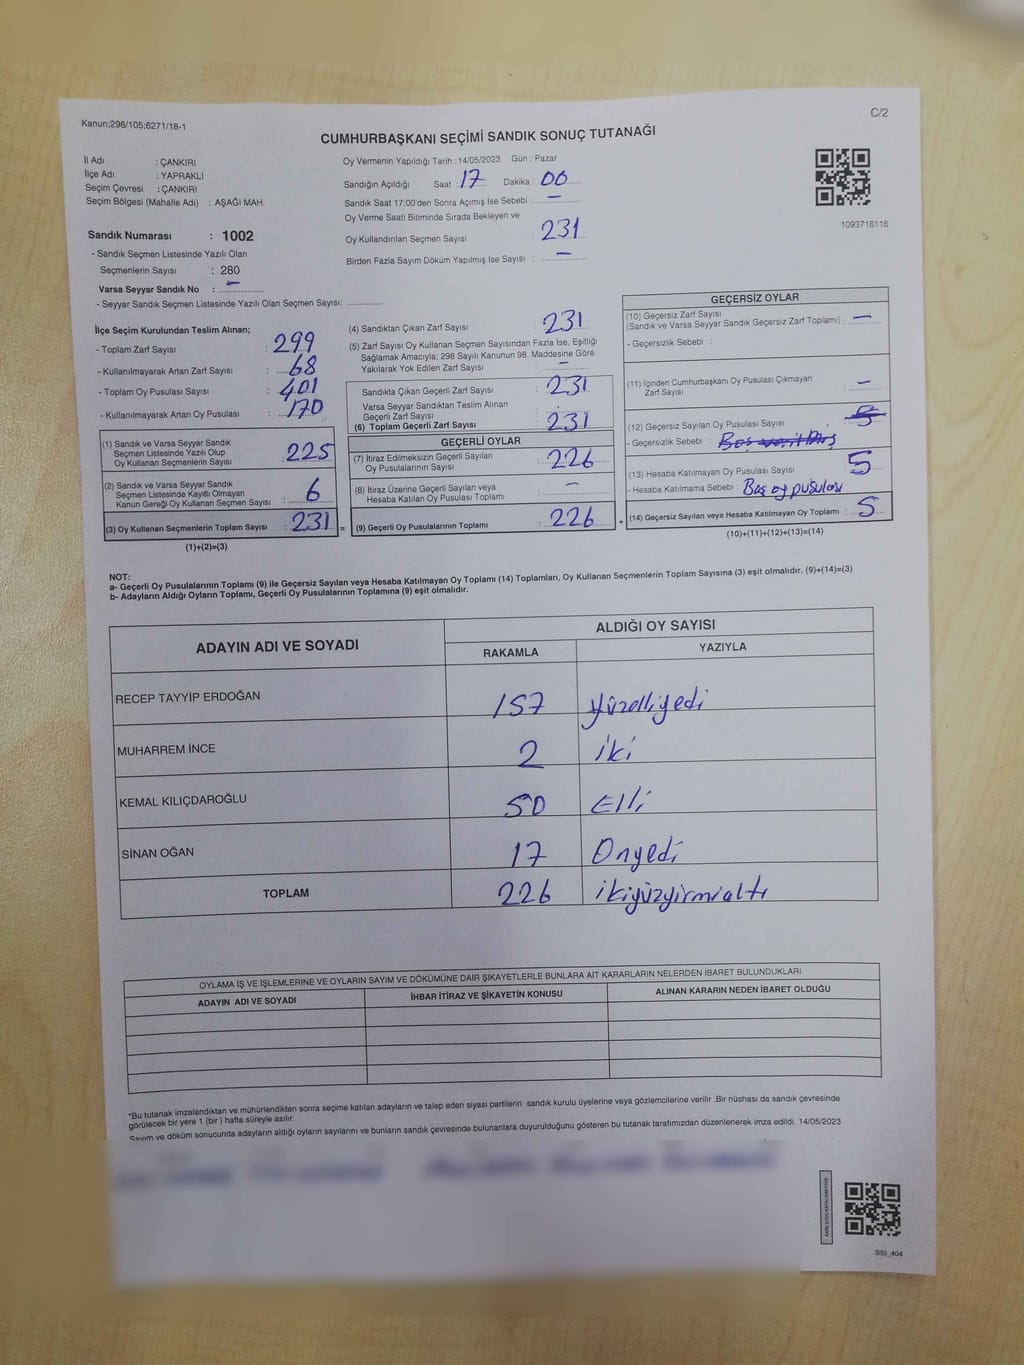 Kanun;298/105;6271/18-1
C/2
CUMHURBAŞKANI SEÇİMİ SANDIK SONUÇ TUTANAĞI
İl Adı : ÇANKIRI
İlçe Adı : YAPRAKLI
Seçim Çevresi : ÇANKIRI
Seçim Bölgesi (Mahalle Adı) : AŞAĞI MAH.
Sandık Numarası : 1002
- Sandık Seçmen Listesinde Yazılı Olan
Seçmenlerin Sayısı : 280
Varsa Seyyar Sandık No : –
- Seyyar Sandık Seçmen Listesinde Yazılı Olan Seçmen Sayısı:
Oy Vermenin Yapıldığı Tarih : 14/05/2023 Gün : Pazar
Sandığın Açıldığı Saat : 17 Dakika : 00
Sandık Saat 17:00'den Sonra Açımış İse Sebebi : –
Oy Verme Saati Bitiminde Sırada Bekleyen ve
Oy Kullandırılan Seçmen Sayısı : 231
Birden Fazla Sayım Döküm Yapılmış İse Sayısı : –
1093716116
İlçe Seçim Kurulundan Teslim Alınan;
- Toplam Zarf Sayısı : 299
- Kullanılmayarak Artan Zarf Sayısı : 68
- Toplam Oy Pusulası Sayısı : 401
- Kullanılmayarak Artan Oy Pusulası : 170
(1) Sandık ve Varsa Seyyar Sandık
Seçmen Listesinde Yazılı Olup
Oy Kullanan Seçmenlerin Sayısı : 225
(2) Sandık ve Varsa Seyyar Sandık
Seçmen Listesinde Kayıtlı Olmayan
Kanun Gereği Oy Kullanan Seçmen Sayısı : 6
(3) Oy Kullanan Seçmenlerin Toplam Sayısı : 231 =
(1)+(2)=(3)
(4) Sandıktan Çıkan Zarf Sayısı : 231
(5) Zarf Sayısı Oy Kullanan Seçmen Sayısından Fazla İse, Eşitliği
Sağlamak Amacıyla; 298 Sayılı Kanunun 98. Maddesine Göre
Yakılarak Yok Edilen Zarf Sayısı : –
Sandıkta Çıkan Geçerli Zarf Sayısı : 231
Varsa Seyyar Sandıktan Teslim Alınan
Geçerli Zarf Sayısı :
(6) Toplam Geçerli Zarf Sayısı : 231
GEÇERLİ OYLAR
(7) İtiraz Edilmeksizin Geçerli Sayılan
Oy Pusulalarının Sayısı : 226
(8) İtiraz Üzerine Geçerli Sayılan veya
Hesaba Katılan Oy Pusulası Toplamı : –
(9) Geçerli Oy Pusulalarının Toplamı : 226 +
GEÇERSİZ OYLAR
(10) Geçersiz Zarf Sayısı
(Sandık ve Varsa Seyyar Sandık Geçersiz Zarf Toplamı) : –
- Geçersizlik Sebebi :
(11) İçinden Cumhurbaşkanı Oy Pusulası Çıkmayan
Zarf Sayısı : –
(12) Geçersiz Sayılan Oy Pusulası Sayısı : 5
- Geçersizlik Sebebi :
(13) Hesaba Katılmayan Oy Pusulası Sayısı : 5
- Hesaba Katılmama Sebebi : Boş oy pusulası
(14) Geçersiz Sayılan veya Hesaba Katılmayan Oy Toplamı : 5
(10)+(11)+(12)+(13)=(14)
NOT:
a- Geçerli Oy Pusulalarının Toplamı (9) ile Geçersiz Sayılan veya Hesaba Katılmayan Oy Toplamı (14) Toplamları, Oy Kullanan Seçmenlerin Toplam Sayısına (3) eşit olmalıdır. (9)+(14)=(3)
b- Adayların Aldığı Oyların Toplamı, Geçerli Oy Pusulalarının Toplamına (9) eşit olmalıdır.
ADAYIN ADI VE SOYADI
ALDIĞI OY SAYISI
RAKAMLA YAZIYLA
RECEP TAYYİP ERDOĞAN 157 Yüzelliyedi
MUHARREM İNCE 2 iki
KEMAL KILIÇDAROĞLU 50 Elli
SİNAN OĞAN 17 Onyedi
TOPLAM 226 ikiyüzyirmialtı
OYLAMA İŞ VE İŞLEMLERİNE VE OYLARIN SAYIM VE DÖKÜMÜNE DAİR ŞİKAYETLERLE BUNLARA AİT KARARLARIN NELERDEN İBARET BULUNDUKLARI
ADAYIN ADI VE SOYADI İHBAR İTİRAZ VE ŞİKAYETİN KONUSU ALINAN KARARIN NEDEN İBARET OLDUĞU
*Bu tutanak imzalandıktan ve mühürlendikten sonra seçime katılan adayların ve talep eden siyasi partilerin sandık kurulu üyelerine veya gözlemcilerine verilir .Bir nüshası da sandık çevresinde
görülecek bir yere 1 (bir ) hafta süreyle asılır.
Sayım ve döküm sonucunda adayların aldığı oyların sayılarını ve bunların sandık çevresinde bulunanlara duyurulduğunu gösteren bu tutanak tarafımızdan düzenlenerek imza edildi. 14/05/2023
SSI_404